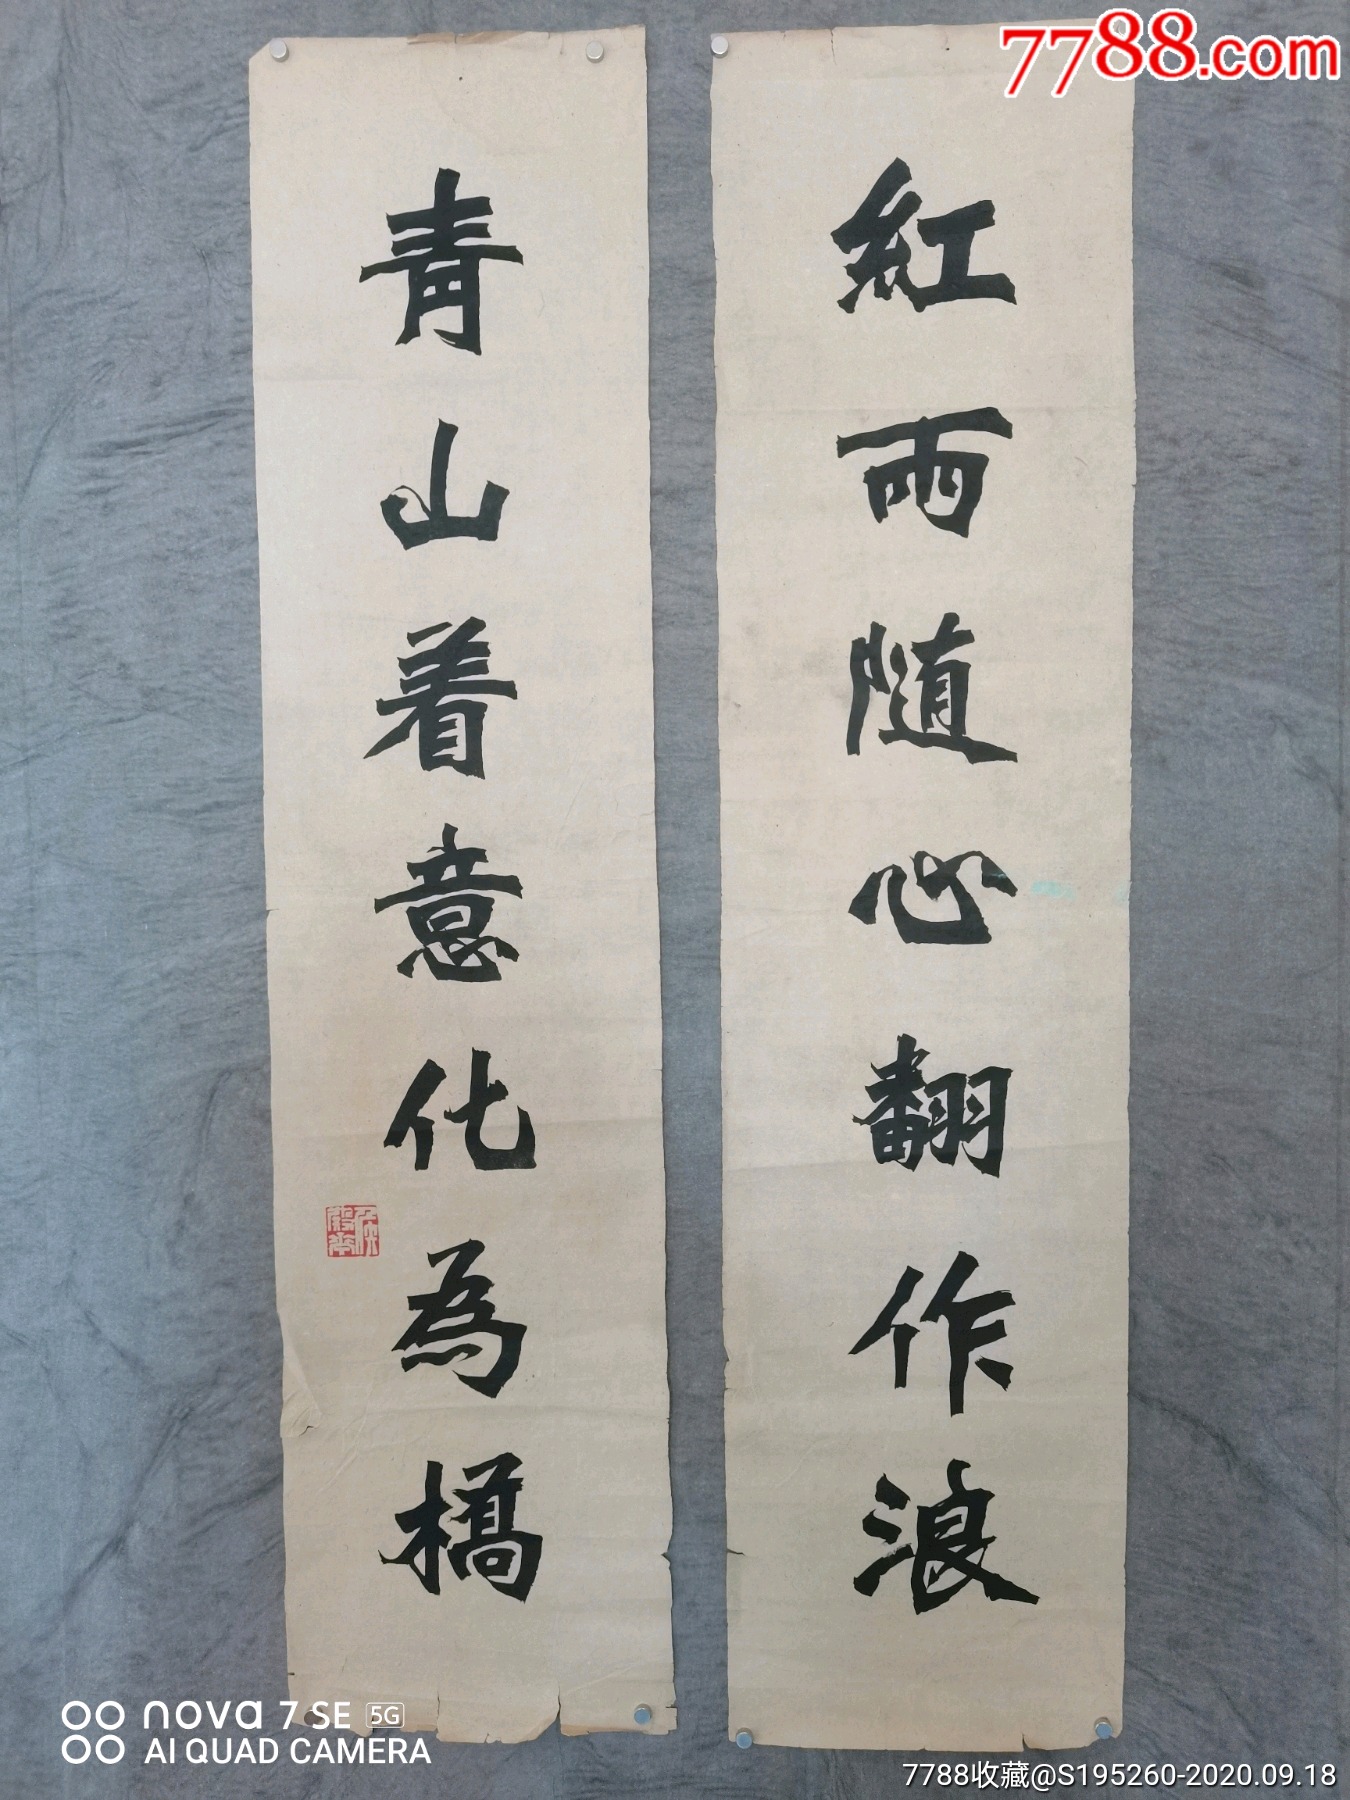 7788.com
紅雨随心翻作浪
青山着意化為橋
nova 7 SE 5G
AI QUAD CAMERA
7788收藏@S195260-2020.09.18